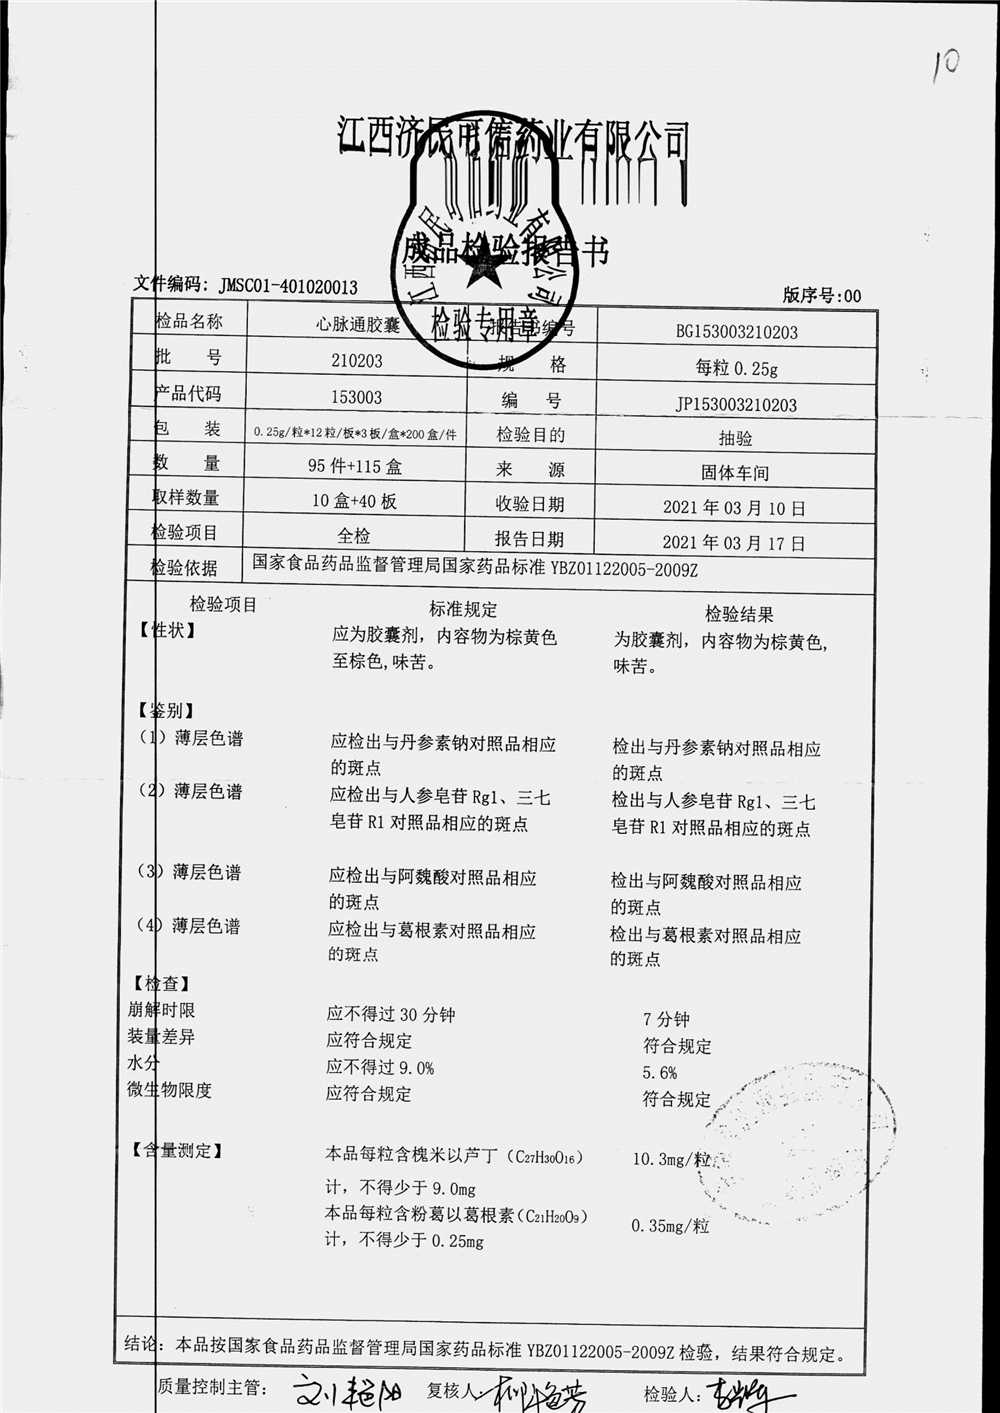 10
江西济民可信药业有限公司
成品检验报告书
检验专用章
文件编码: JMSC01-401020013
版序号:00
检品名称 心脉通胶囊 报告书编号 BG153003210203
批 号 210203 规 格 每粒 0.25g
产品代码 153003 编 号 JP153003210203
包 装 0.25g/粒*12粒/板*3板/盒*200盒/件 检验目的 抽验
数 量 95件+115盒 来 源 固体车间
取样数量 10盒+40板 收验日期 2021年03月10日
检验项目 全检 报告日期 2021年03月17日
检验依据 国家食品药品监督管理局国家药品标准 YBZ01122005-2009Z
检验项目 标准规定 检验结果
【性状】 应为胶囊剂，内容物为棕黄色 为胶囊剂，内容物为棕黄色,
至棕色,味苦。 味苦。
【鉴别】
（1）薄层色谱 应检出与丹参素钠对照品相应 检出与丹参素钠对照品相应
的斑点 的斑点
（2）薄层色谱 应检出与人参皂苷 Rg1、三七 检出与人参皂苷 Rg1、三七
皂苷 R1 对照品相应的斑点 皂苷 R1 对照品相应的斑点
（3）薄层色谱 应检出与阿魏酸对照品相应 检出与阿魏酸对照品相应
的斑点 的斑点
（4）薄层色谱 应检出与葛根素对照品相应 检出与葛根素对照品相应
的斑点 的斑点
【检查】
崩解时限 应不得过 30 分钟 7 分钟
装量差异 应符合规定 符合规定
水分 应不得过 9.0% 5.6%
微生物限度 应符合规定 符合规定
【含量测定】 本品每粒含槐米以芦丁（C27H30O16） 10.3mg/粒
计，不得少于 9.0mg
本品每粒含粉葛以葛根素（C21H20O9） 0.35mg/粒
计，不得少于 0.25mg
结论：本品按国家食品药品监督管理局国家药品标准 YBZ01122005-2009Z 检验，结果符合规定。
质量控制主管： 复核人 检验人：